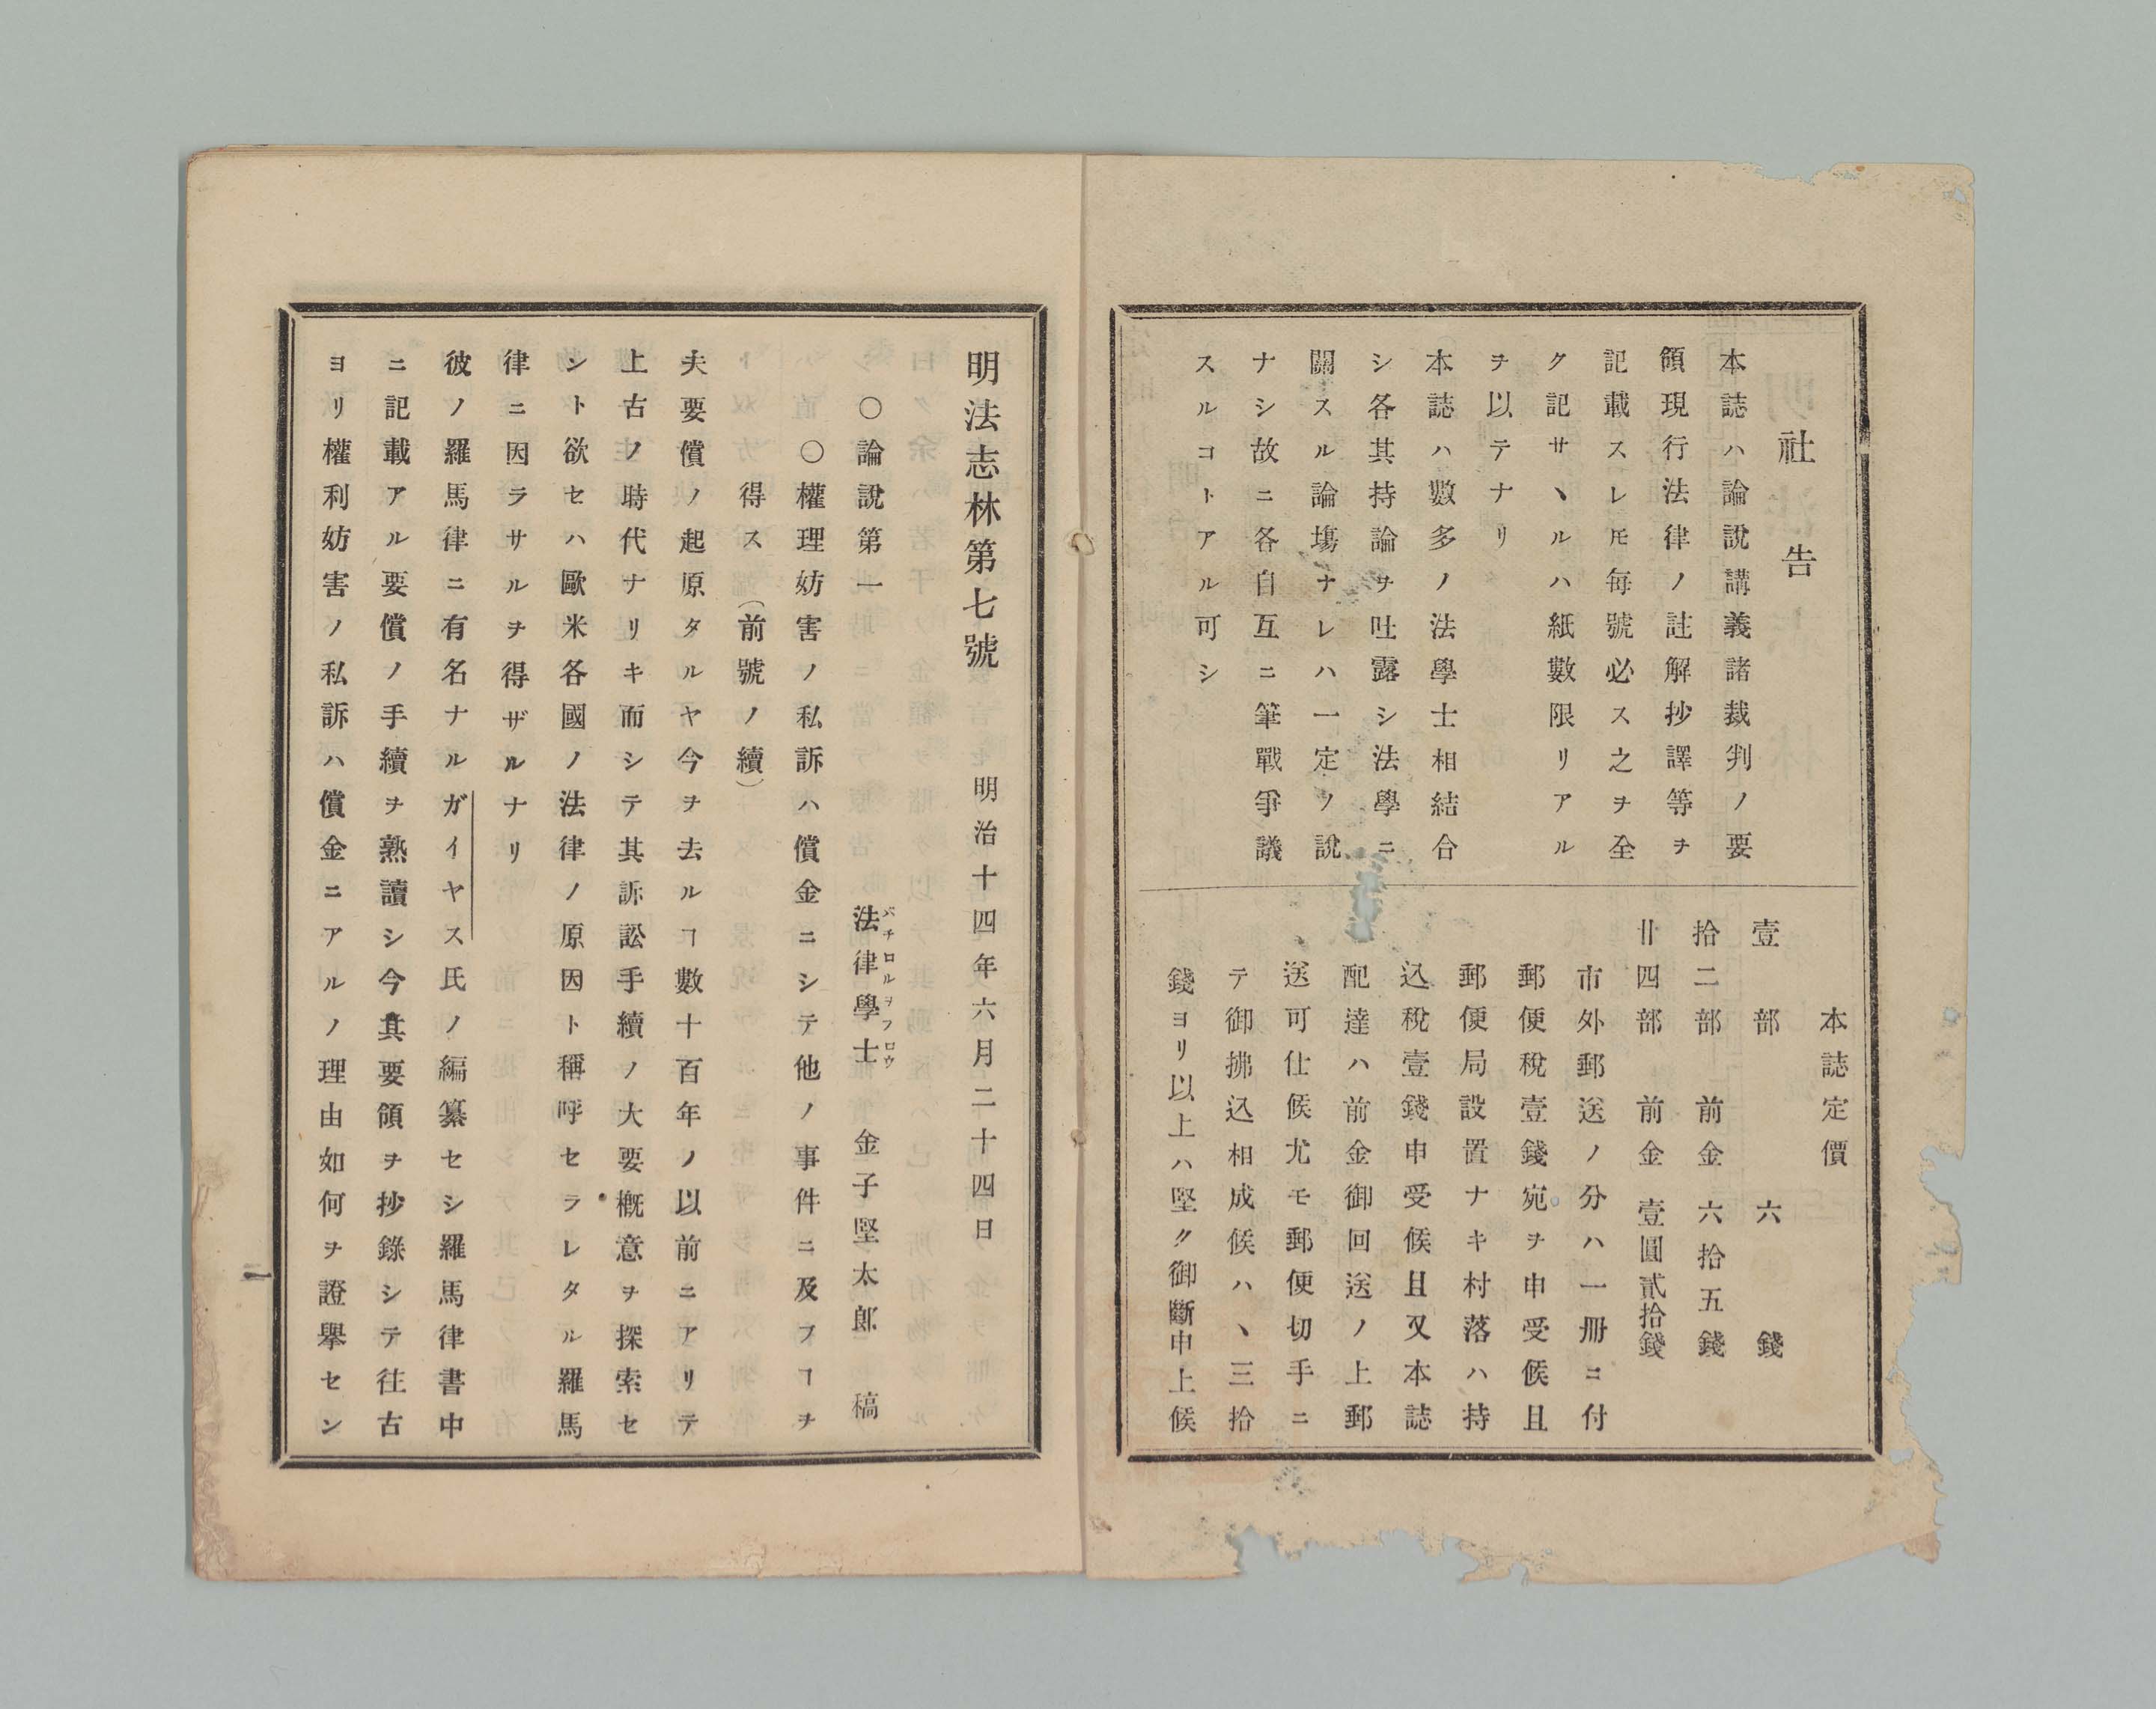 社告
本誌ハ論說講義諸裁判ノ要
領現行法律ノ註解抄譯等ヲ
記載スレ𪜈每號必ス之ヲ全
ク記サヽルハ紙數限リアル
ヲ以テナリ
本誌ハ數多ノ法學士相結合
シ各其持論ヲ吐露シ法學ニ
關スル論塲ナレハ一定ノ說
ナシ故ニ各自互ニ筆戰爭議
スルコトアル可シ
本誌定價
壹部 六錢
拾二部 前金 六拾五錢
廿四部 前金 壹圓貳拾錢
市外郵送ノ分ハ一冊ニ付
郵便稅壹錢宛ヲ申受候且
郵便局設置ナキ村落ハ持
込稅壹錢申受候且又本誌
配達ハ前金御回送ノ上郵
送可仕候尤モ郵便切手ニ
テ御拂込相成候ハヽ三拾
錢ヨリ以上ハ堅ク御斷申上候
明法志林第七號 明治十四年六月二十四日
○論說第一 法律學士 金子堅太郎 稿
バチロルヲフロウ
○權理妨害ノ私訴ハ償金ニシテ他ノ事件ニ及フヿヲ
得ス(前號ノ續)
夫要償ノ起原タルヤ今ヲ去ルヿ數十百年ノ以前ニアリテ
上古ノ時代ナリキ而シテ其訴訟手續ノ大要槪意ヲ探索セ
シト欲セハ歐米各國ノ法律ノ原因ト稱呼セラレタル羅馬
律ニ因ラサルヲ得ザルナリ
彼ノ羅馬律ニ有名ナルガイヤス氏ノ編纂セシ羅馬律書中
ニ記載アル要償ノ手續ヲ熟讀シ今其要領ヲ抄錄シテ往古
ヨリ權利妨害ノ私訴ハ償金ニアルノ理由如何ヲ證擧セン
一